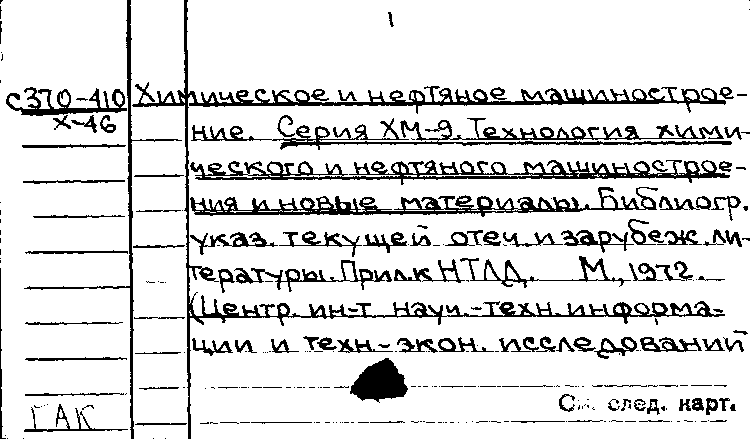 1
с370-410 Химическое и нефтяное машинострое-
х-46
ние. Серия ХМ-9. Технология хими-
ческого и нефтяного машинострое-
ния и новые материалы. Библиогр.
указ. текущей отеч. и зарубеж. ли-
тературы. Прил. к НТЛД. М., 1972.
(Центр. ин-т науч.-техн. информа-
ции и техн.-экон. исследований
См. след. карт.
ГАК